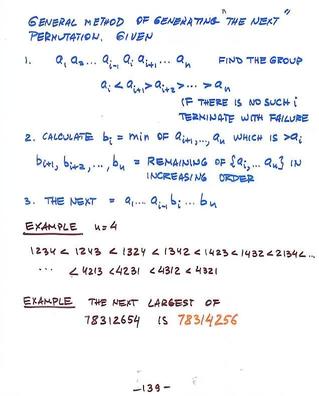 GENERAL METHOD OF GENERATING "THE NEXT"
PERMUTATION. GIVEN
1. a₁ a₂... aᵢ₋₁ aᵢ aᵢ₊₁ ... aₙ FIND THE GROUP
aᵢ < aᵢ₊₁ > aᵢ₊₂ > ... > aₙ
(IF THERE IS NO SUCH i
TERMINATE WITH FAILURE
2. CALCULATE bᵢ = min OF aᵢ₊₁,..., aₙ WHICH IS > aᵢ
bᵢ₊₁, bᵢ₊₂, ..., bₙ = REMAINING OF {aᵢ,... aₙ} IN
INCREASING ORDER
3. THE NEXT = a₁.... aᵢ₋₁ bᵢ ... bₙ
EXAMPLE n=4
1234 < 1243 < 1324 < 1342 < 1423 < 1432 < 2134 < ...
... < 4213 < 4231 < 4312 < 4321
EXAMPLE THE NEXT LARGEST OF
78312654 IS 78314256
-139-